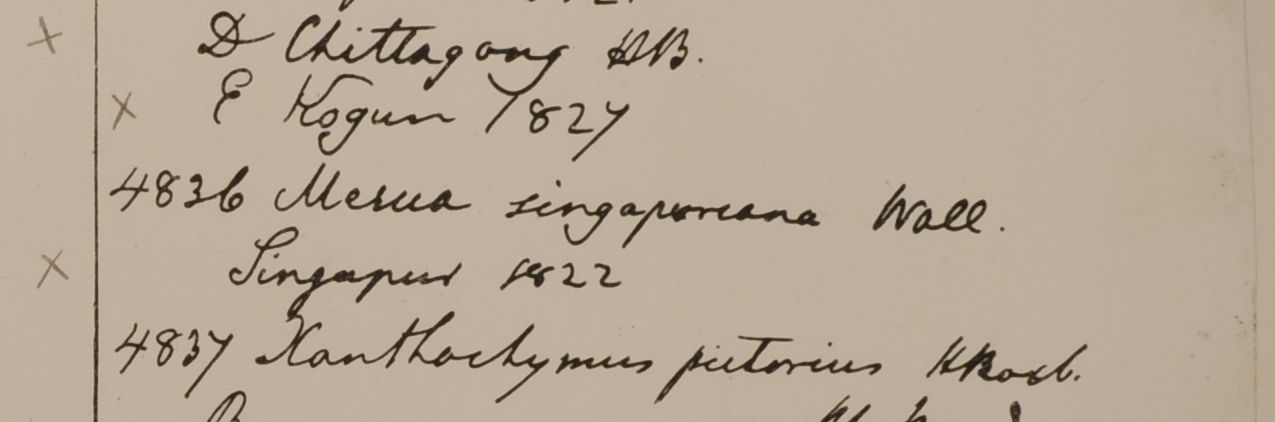 × D Chittagong HB.
× E Kogun 1827
4836 Mesua singaporeana Wall.
× Singapur 1822
4837 Xanthochymus pictorius HRoxb.